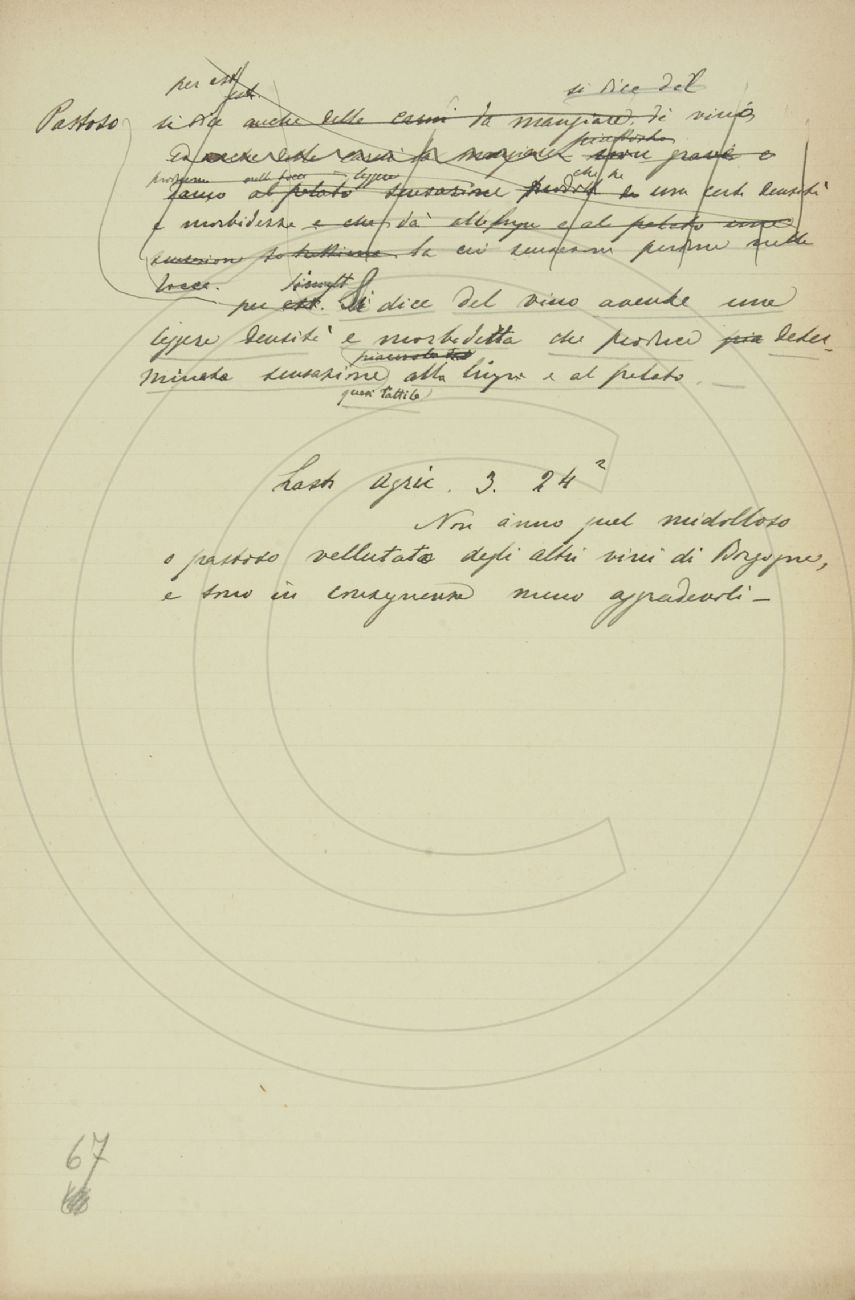 per est.
si dice del
Pastoso si dice anche delle carni da mangiare, di vino
ed anche delle carni da mangiare
al palato sensazione che ha una certa densità
e morbidezza e che dà alla lingua e al palato una
sensazione la cui sensazione perdura nella
bocca.
per est. Si dice del vino avente una
leggera densità e morbidetta che produce deter-
minata sensazione alla lingua e al palato
quasi tattile
Lastr. agric. 3. 242
Non ànno quel midolloso
o pastoso vellutato degli altri vini di Borgogna,
e sono in conseguenza meno aggradevoli –
67